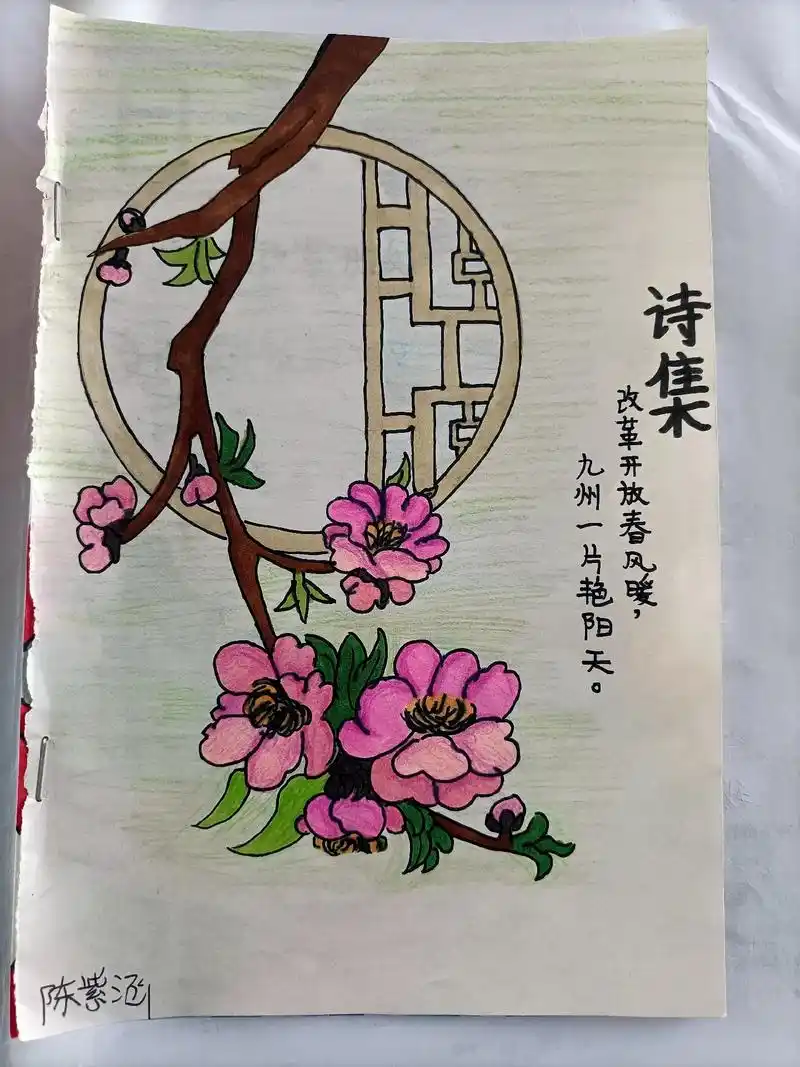 诗集
改革开放春风暖，
九州一片艳阳天。
陈紫涵